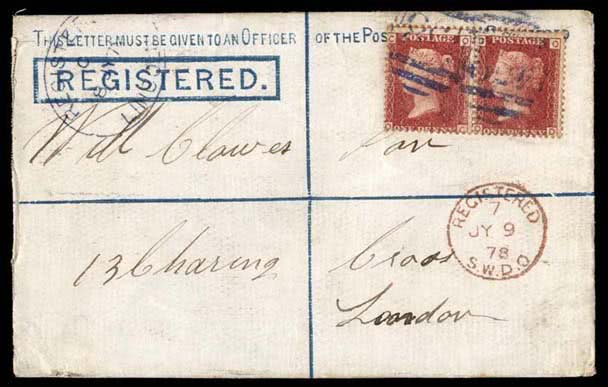 THIS LETTER MUST BE GIVEN TO AN OFFICER OF THE POS
REGISTERED.
POSTAGE POSTAGE
Wm Clowes
13 Charing Cross
London
REGISTERED
7
JY 9
78
S.W.D.O